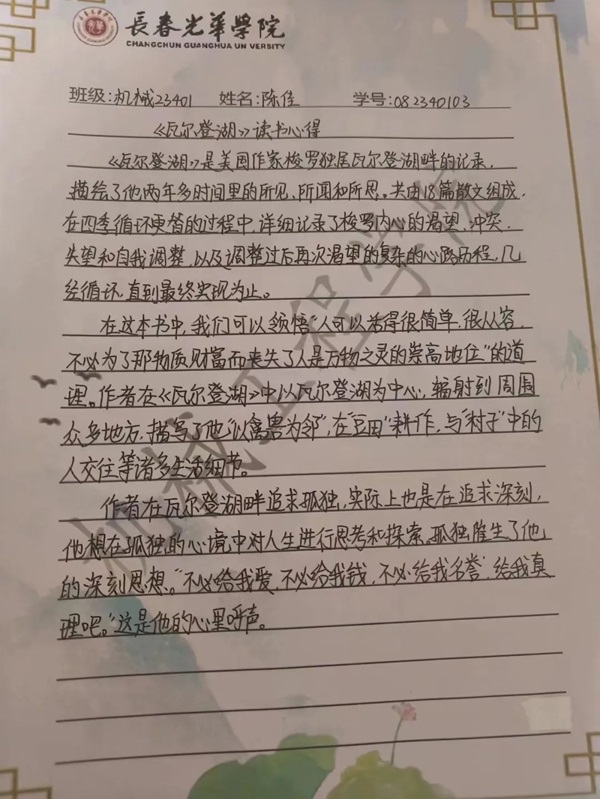 長春光華學院
CHANGCHUN GUANGHUA UNIVERSITY
班级:机械23401 姓名:陈佳 学号:082340103
《瓦尔登湖》读书心得
《瓦尔登湖》是美国作家梭罗独居瓦尔登湖畔的记录,
描绘了他两年多时间里的所见、所闻和所思。共由18篇散文组成,
在四季循环更替的过程中,详细记录了梭罗内心的渴望、冲突、
失望和自我调整,以及调整过后再次渴望的复杂的心路历程,几
经循环,直到最终实现为止。
在这本书中,我们可以领悟“人可以活得很简单,很从容,
不必为了那物质财富而丧失了人是万物之灵的崇高地位”的道
理。作者在《瓦尔登湖》中以瓦尔登湖为中心,辐射到周围
众多地方,描写了他“以禽兽为邻”,在“豆田”耕作,与“村子”中的
人交往等诸多生活细节。
作者在瓦尔登湖畔追求孤独,实际上也是在追求深刻,
他想在孤独的心境中对人生进行思考和探索,孤独催生了他
的深刻思想。“不必给我爱,不必给我钱,不必给我名誉,给我真
理吧。”这是他的心里呼声。
机械工程学院